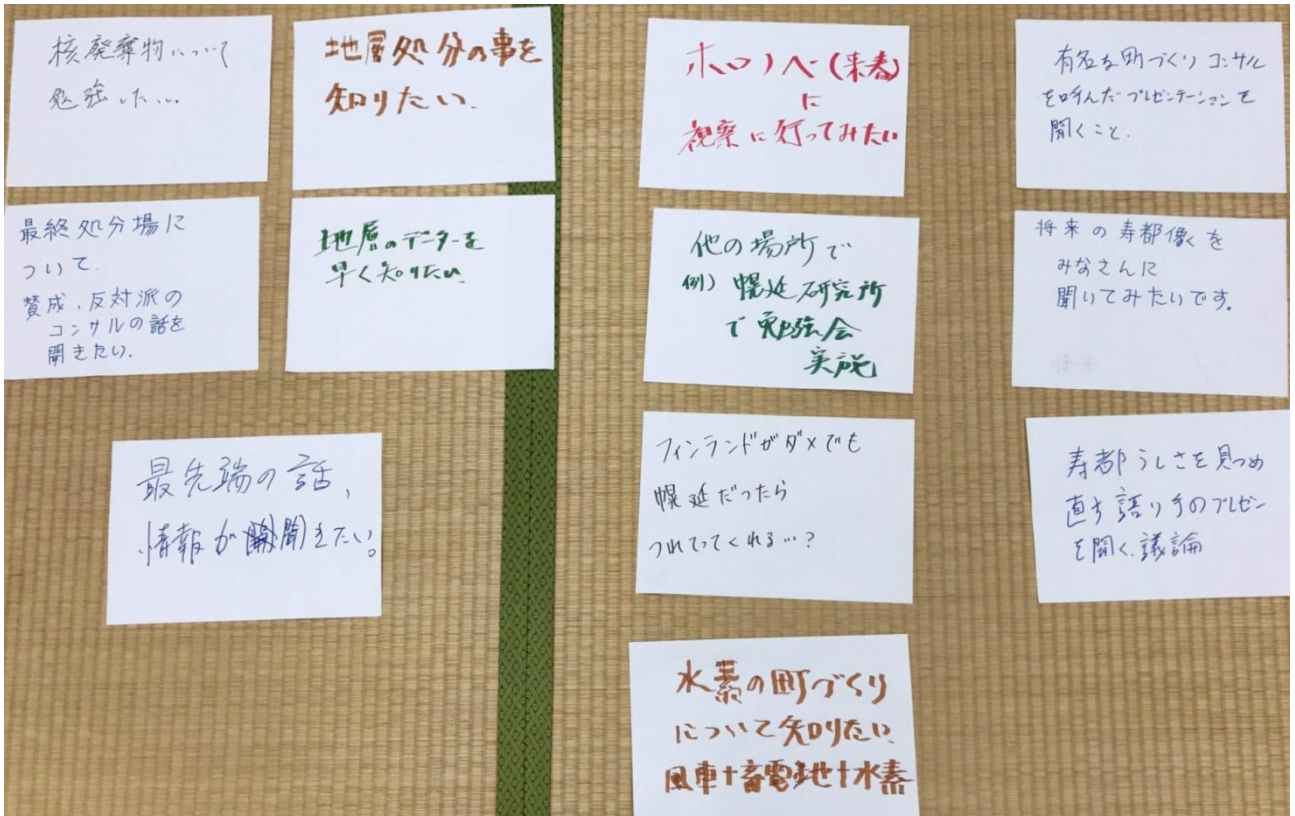 核廃棄物について
勉強したい。
地層処分の事を
知りたい。
最終処分場に
ついて
賛成、反対派の
コンサルの話を
聞きたい。
地層のデーターを
早く知りたい
最先端の話、
情報が聞きたい。
ホロノベ(来春)
に
視察に行ってみたい
他の場所で
例) 幌延研究所
で勉強会
実施
フィンランドがダメでも
幌延だったら
つれてってくれる…?
水素の町づくり
について知りたい
風車+蓄電地+水素
有名な町づくりコンサル
を呼んだプレゼンテーションを
聞くこと。
将来の寿都像を
みなさんに
聞いてみたいです。
寿都らしさを見つめ
直す語り手のプレゼン
を聞く、議論